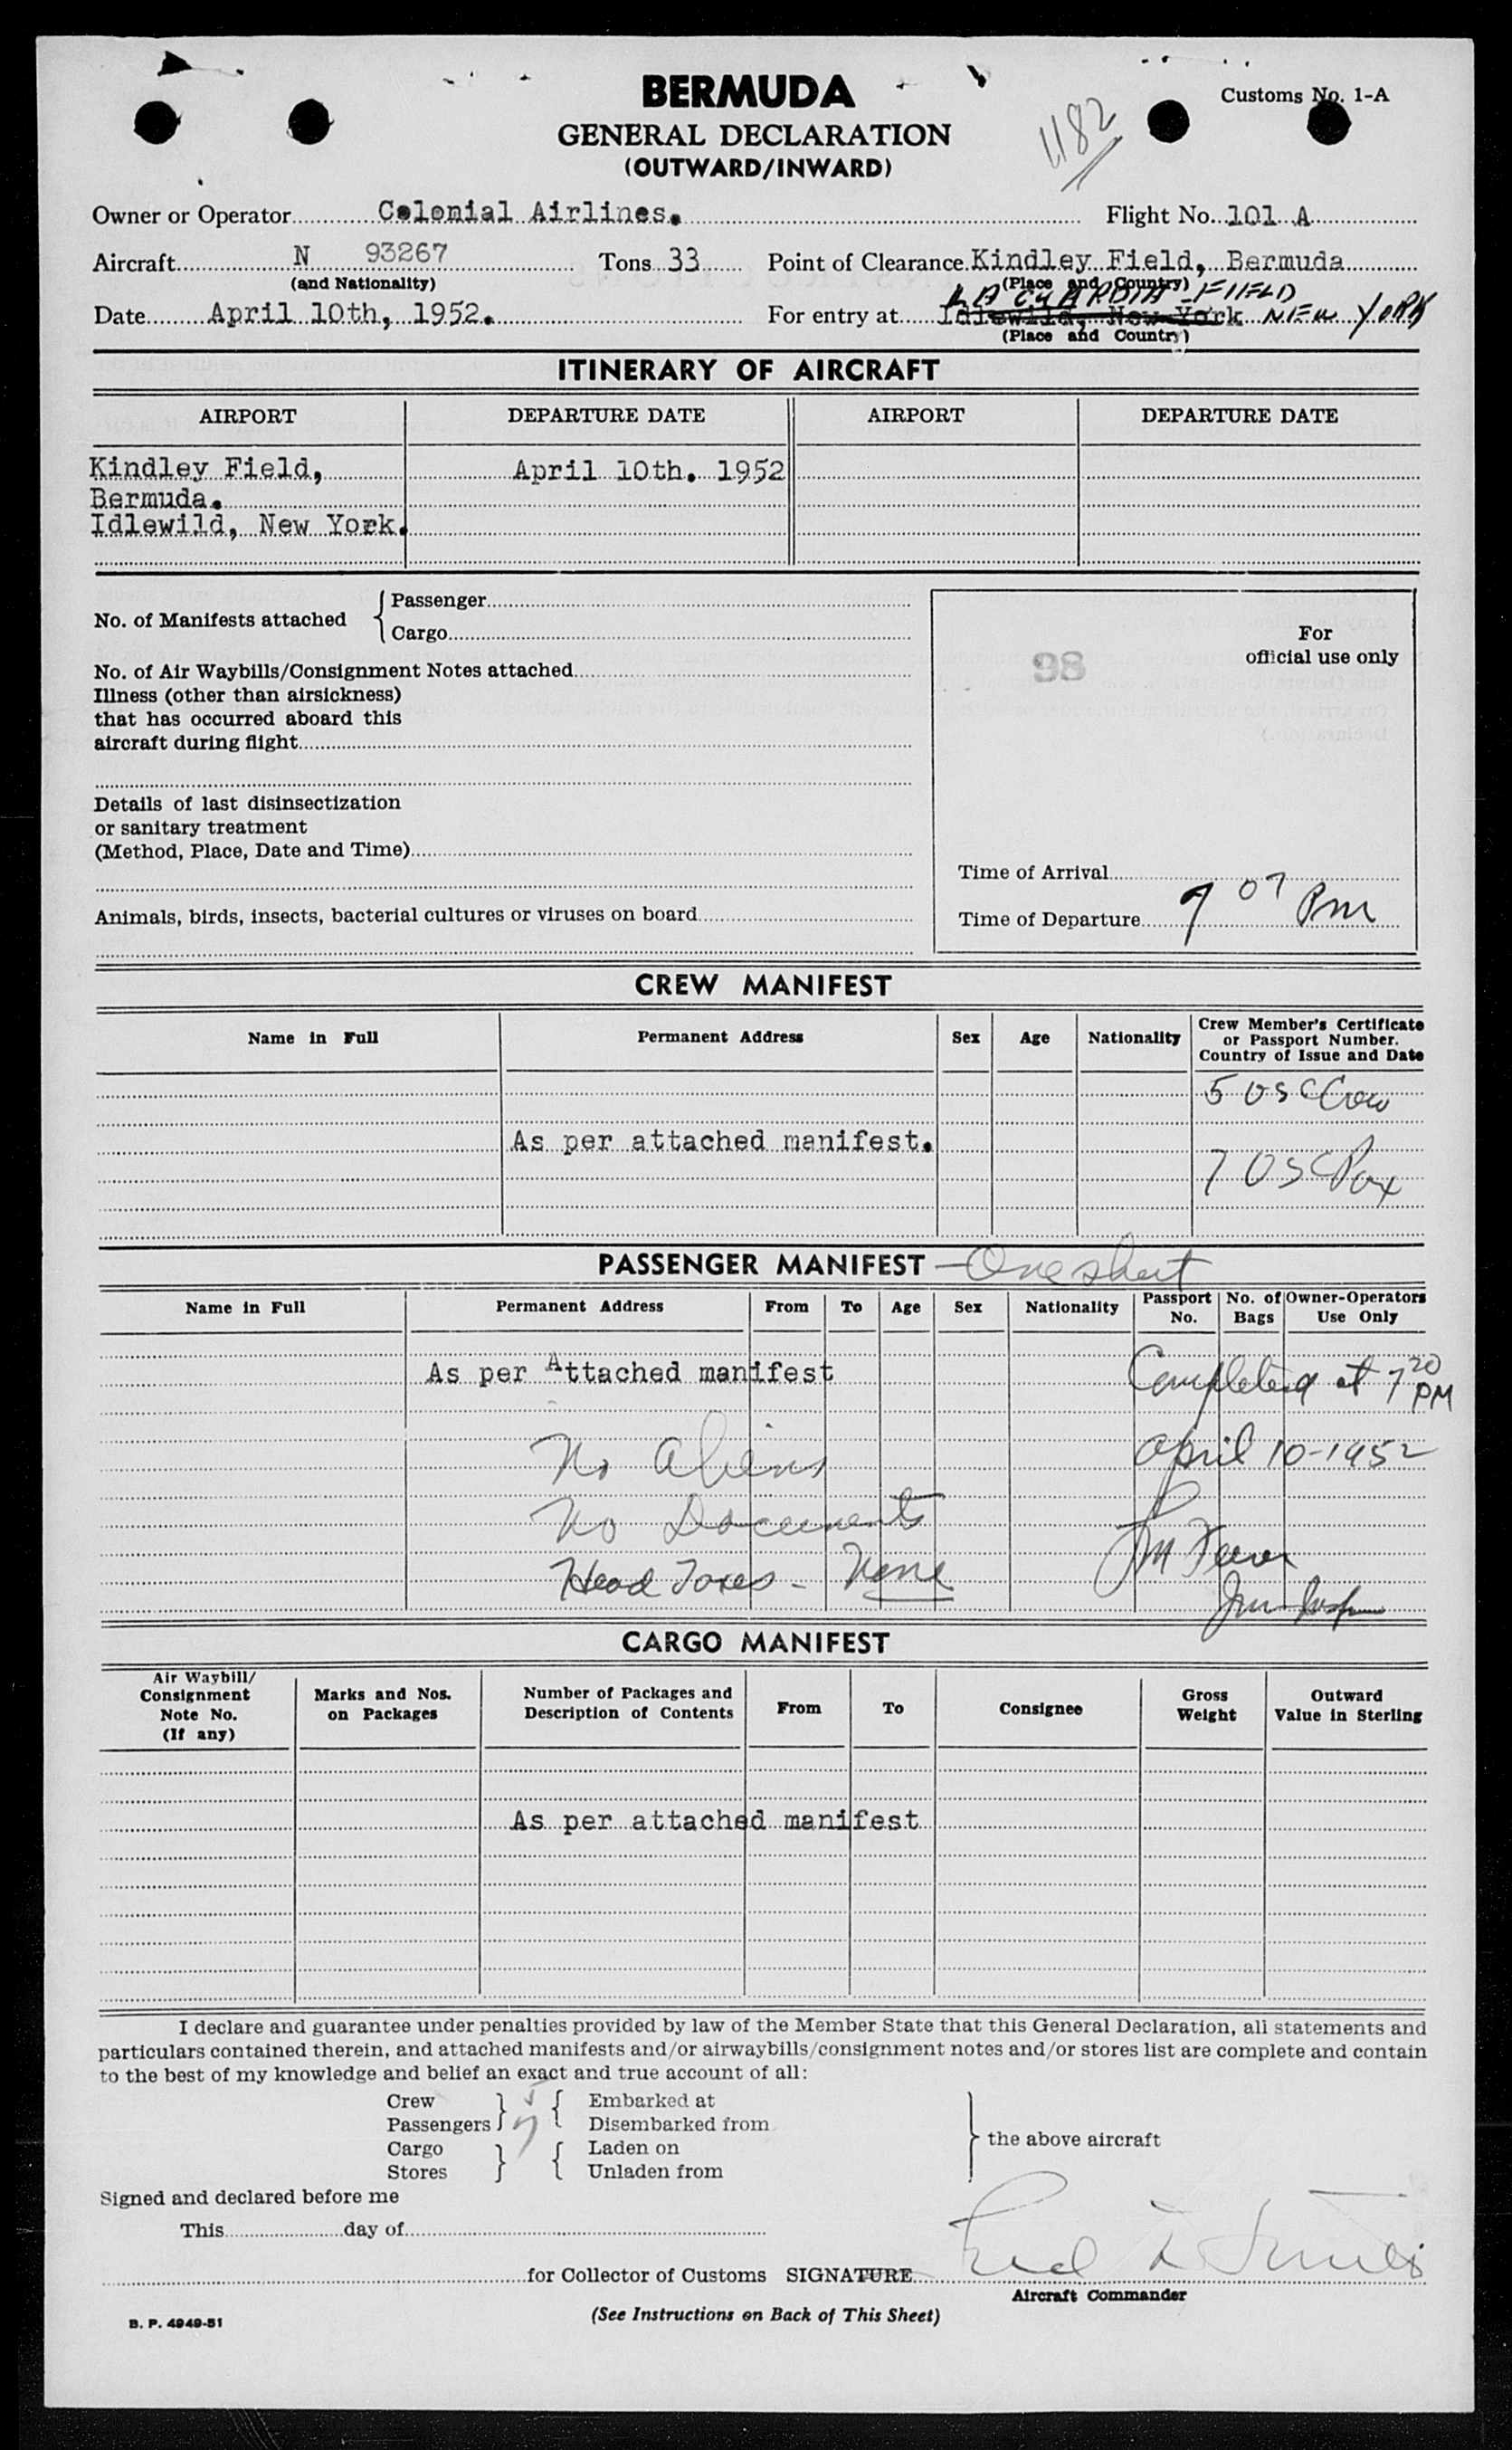 BERMUDA
Customs No. 1-A
GENERAL DECLARATION
1182
(OUTWARD/INWARD)
Owner or Operator Colonial Airlines. Flight No. 101 A
Aircraft N 93267 Tons 33 Point of Clearance Kindley Field, Bermuda
(and Nationality) (Place and Country)
LA GUARDIA FIELD
Date April 10th, 1952. For entry at Idlewild, New York NEW YORK
(Place and Country)
ITINERARY OF AIRCRAFT
AIRPORT DEPARTURE DATE AIRPORT DEPARTURE DATE
Kindley Field, April 10th. 1952
Bermuda.
Idlewild, New York.
No. of Manifests attached { Passenger
Cargo
For
official use only
98
No. of Air Waybills/Consignment Notes attached
Illness (other than airsickness)
that has occurred aboard this
aircraft during flight
Details of last disinsectization
or sanitary treatment
(Method, Place, Date and Time)
Time of Arrival
Animals, birds, insects, bacterial cultures or viruses on board
Time of Departure 7 07 Pm
CREW MANIFEST
Name in Full Permanent Address Sex Age Nationality Crew Member's Certificate or Passport Number. Country of Issue and Date
5 USC Crew
As per attached manifest.
7 USC Pax
PASSENGER MANIFEST - One sheet
Name in Full Permanent Address From To Age Sex Nationality Passport No. No. of Bags Owner-Operators Use Only
As per Attached manifest Completed at 7 20 PM
No Aliens April 10-1952
No Documents
Head Taxes - None
CARGO MANIFEST
Air Waybill/ Consignment Note No. (If any) Marks and Nos. on Packages Number of Packages and Description of Contents From To Consignee Gross Weight Outward Value in Sterling
As per attached manifest
I declare and guarantee under penalties provided by law of the Member State that this General Declaration, all statements and
particulars contained therein, and attached manifests and/or airwaybills/consignment notes and/or stores list are complete and contain
to the best of my knowledge and belief an exact and true account of all:
Crew } 5 { Embarked at
Passengers 7 Disembarked from
Cargo } { Laden on } the above aircraft
Stores Unladen from
Signed and declared before me
This day of
for Collector of Customs SIGNATURE
Aircraft Commander
(See Instructions on Back of This Sheet)
B. P. 4949-51